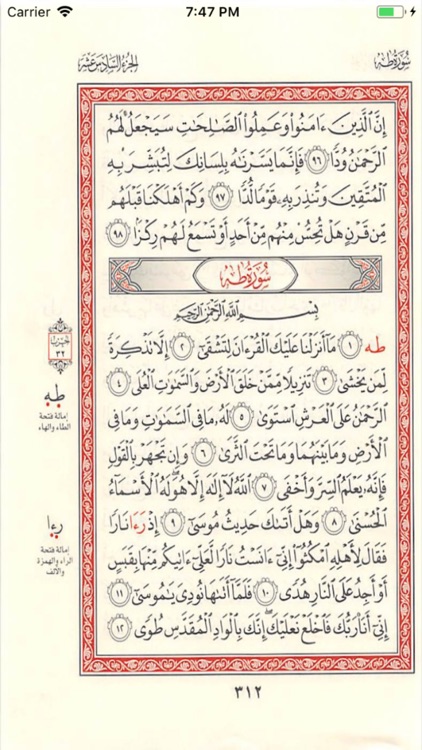 Carrier 7:47 PM
سُورَةُ طه الجُزْءُ السَّادِسَ عَشَرَ
إِنَّ ٱلَّذِينَ ءَامَنُواْ وَعَمِلُواْ ٱلصَّـٰلِحَـٰتِ سَيَجْعَلُ لَهُمُ
ٱلرَّحْمَـٰنُ وُدًّا ٩٦ فَإِنَّمَا يَسَّرْنَـٰهُ بِلِسَانِكَ لِتُبَشِّرَ بِهِ
ٱلْمُتَّقِينَ وَتُنذِرَ بِهِۦ قَوْمًا لُّدًّا ٩٧ وَكَمْ أَهْلَكْنَا قَبْلَهُم
مِّن قَرْنٍ هَلْ تُحِسُّ مِنْهُم مِّنْ أَحَدٍ أَوْ تَسْمَعُ لَهُمْ رِكْزًا ٩٨
سُورَةُ طه
بِسْمِ ٱللَّهِ ٱلرَّحْمَـٰنِ ٱلرَّحِيمِ
طه ١ مَآ أَنزَلْنَا عَلَيْكَ ٱلْقُرْءَانَ لِتَشْقَىٰٓ ٢ إِلَّا تَذْكِرَةً
لِّمَن يَخْشَىٰ ٣ تَنزِيلًا مِّمَّنْ خَلَقَ ٱلْأَرْضَ وَٱلسَّمَـٰوَٰتِ ٱلْعُلَى ٤
ٱلرَّحْمَـٰنُ عَلَى ٱلْعَرْشِ ٱسْتَوَىٰ ٥ لَهُۥ مَا فِى ٱلسَّمَـٰوَٰتِ وَمَا فِى
ٱلْأَرْضِ وَمَا بَيْنَهُمَا وَمَا تَحْتَ ٱلثَّرَىٰ ٦ وَإِن تَجْهَرْ بِٱلْقَوْلِ
فَإِنَّهُۥ يَعْلَمُ ٱلسِّرَّ وَأَخْفَى ٧ ٱللَّهُ لَآ إِلَـٰهَ إِلَّا هُوَ لَهُ ٱلْأَسْمَآءُ
ٱلْحُسْنَىٰ ٨ وَهَلْ أَتَىٰكَ حَدِيثُ مُوسَىٰٓ ٩ إِذْ رَءَا نَارًا
فَقَالَ لِأَهْلِهِ ٱمْكُثُوٓاْ إِنِّىٓ ءَانَسْتُ نَارًا لَّعَلِّىٓ ءَاتِيكُم مِّنْهَا بِقَبَسٍ
أَوْ أَجِدُ عَلَى ٱلنَّارِ هُدًى ١٠ فَلَمَّآ أَتَىٰهَا نُودِىَ يَـٰمُوسَىٰٓ ١١
إِنِّىٓ أَنَا۠ رَبُّكَ فَٱخْلَعْ نَعْلَيْكَ إِنَّكَ بِٱلْوَادِ ٱلْمُقَدَّسِ طُوًى ١٢
٣٢
طه
إمالة فتحة
الطاء والهاء
رءا
إمالة فتحة
الراء والهمزة
والألف
٣١٢